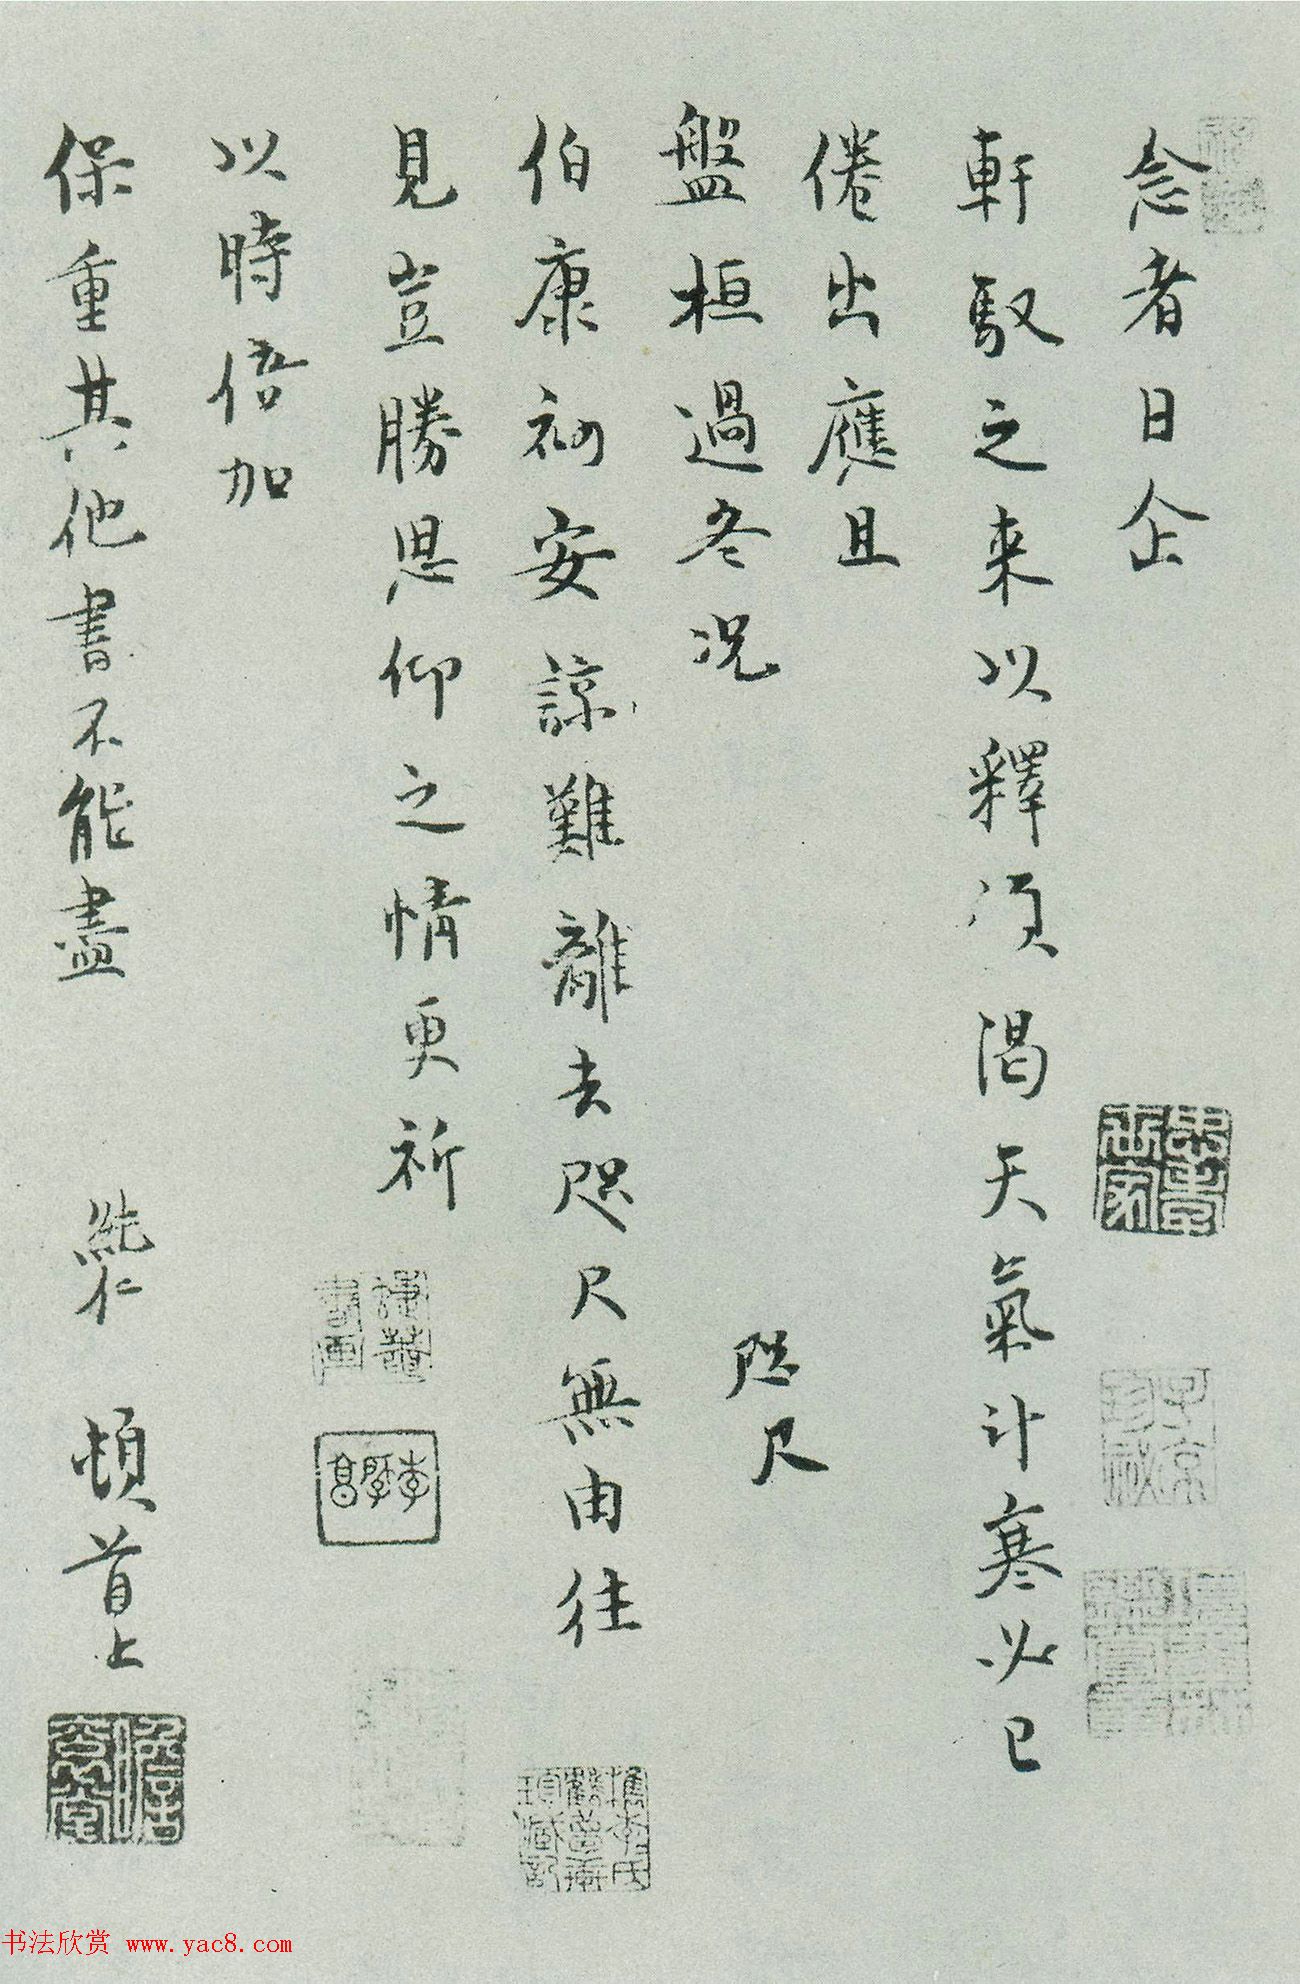 念者日企
軒馭之来以釋湏渴天氣汁寒必已
倦出應且
盤桓過冬况
咫尺
伯康初安諒難離去咫尺無由往
見豈勝思仰之情更祈
以時倍加
保重其他書不能盡 純仁 頓首上
書法欣赏 www.yac8.com